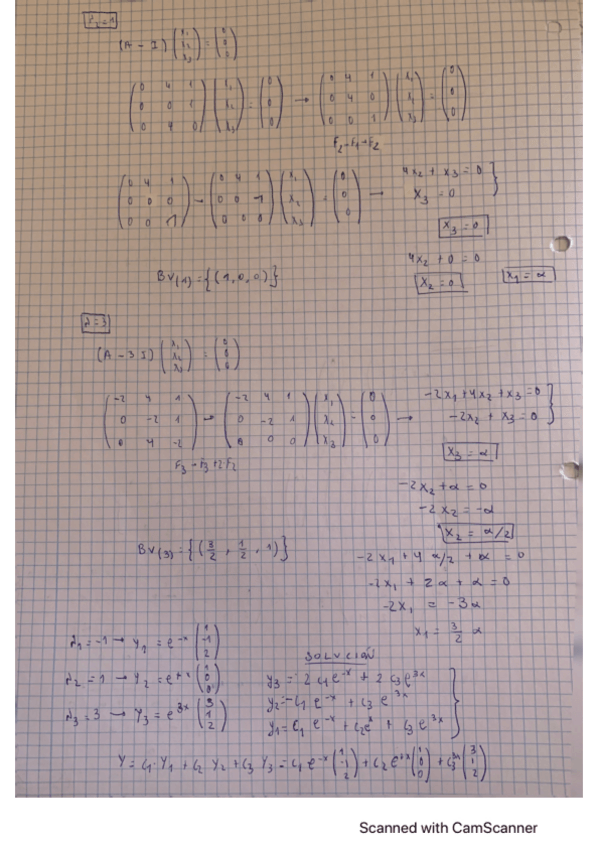 λ2=1
(A - I) (x1 x2 x3) = (0 0 0)
(0 4 1 / 0 0 1 / 0 4 0) (x1 x2 x3) = (0 0 0) → (0 4 1 / 0 4 0 / 0 0 1) (x1 x2 x3) = (0 0 0)
F2-F1→F2
(0 4 1 / 0 0 0 / 0 0 1) → (0 4 1 / 0 0 -1 / 0 0 0) (x1 x2 x3) = (0 0 0) → 4x2 + x3 = 0
x3 = 0 }
x3 = 0
4x2 + 0 = 0
BV(1) = {(1,0,0)}
x2 = 0 x1 = α
λ=3
(A - 3I) (x1 x2 x3) = (0 0 0)
(-2 4 1 / 0 -2 1 / 0 4 -2) → (-2 4 1 / 0 -2 1 / 0 0 0) (x1 x2 x3) = (0 0 0) → -2x1+4x2+x3=0
-2x2 + x3 = 0 }
F3→F3+2F2
x3 = α
-2x2+α=0
-2x2 = -α
x2 = α/2
BV(3) = {(3/2, 1/2, 1)}
-2x1 + 4 α/2 + α = 0
-2x1 + 2α + α = 0
-2x1 = -3α
x1 = 3/2 α
λ1=-1 → Y1 = e^-x (1 -1 2)
SOLUCIÓN
λ2=1 → Y2 = e^+x (1 0 0)
y3 = 2c1e^-x + 2c3e^3x
λ3=3 → Y3 = e^3x (3 1 2)
y2=-c1e^-x + c3e^3x
y1=c1e^-x + c2e^x + c3e^3x
Y = c1·Y1 + c2 Y2 + c3 Y3 = c1e^-x (1 -1 2) + c2e^+x (1 0 0) + c3^3x (3 1 2)
Scanned with CamScanner